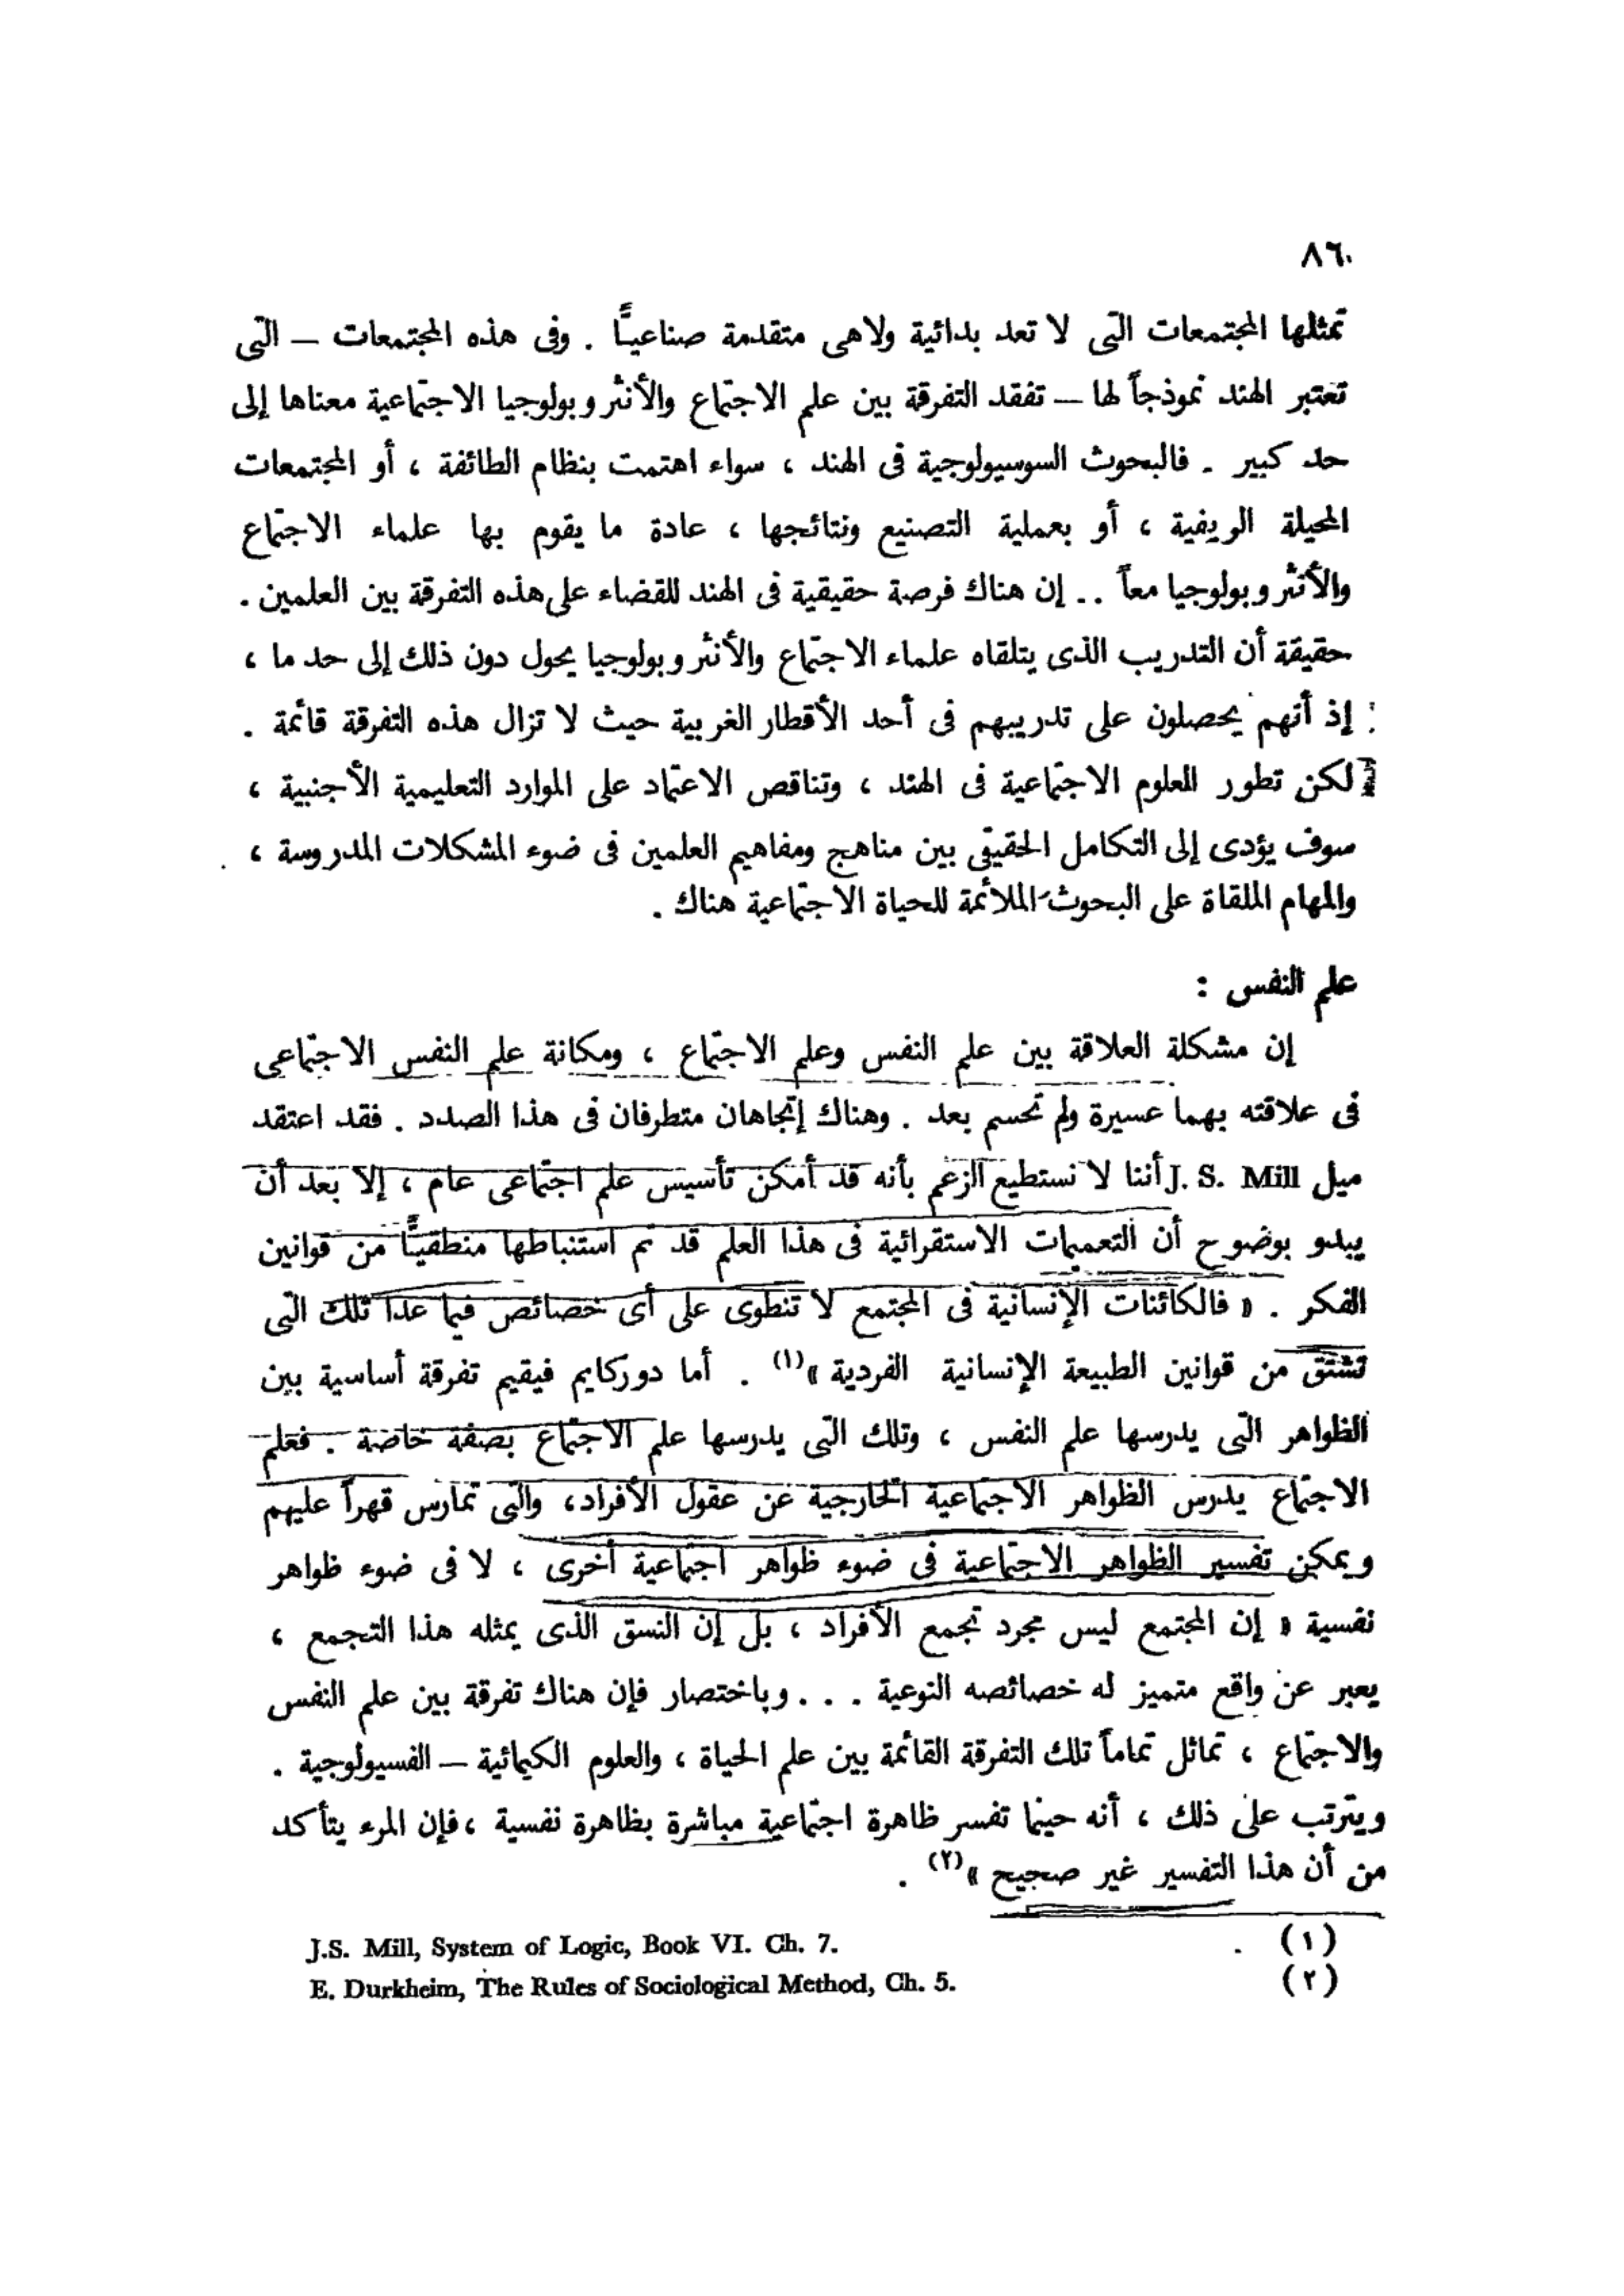 ٨٦
تمثلها المجتمعات التى لا تعد بدائية ولاهى متقدمة صناعيًّا . وفى هذه المجتمعات – التى
تعتبر الهند نموذجاً لها – تفقد التفرقة بين علم الاجتماع والأنثروبولوجيا الاجتماعية معناها إلى
حد كبير . فالبحوث السوسيولوجية فى الهند ، سواء اهتمت بنظام الطائفة ، أو المجتمعات
المحيلة الريفية ، أو بعملية التصنيع ونتائجها ، عادة ما يقوم بها علماء الاجتماع
والأنثروبولوجيا معاً .. إن هناك فرصة حقيقية فى الهند للقضاء على هذه التفرقة بين العلمين .
حقيقة أن التدريب الذى يتلقاه علماء الاجتماع والأنثروبولوجيا يحول دون ذلك إلى حد ما ،
إذ أنهم يحصلون على تدريبهم فى أحد الأقطار الغربية حيث لا تزال هذه التفرقة قائمة .
لكن تطور العلوم الاجتماعية فى الهند ، وتناقص الاعتماد على الموارد التعليمية الأجنبية ،
سوف يؤدى إلى التكامل الحقيقى بين مناهج ومفاهيم العلمين فى ضوء المشكلات المدروسة ،
والمهام الملقاة على البحوث الملائمة للحياة الاجتماعية هناك .
علم النفس :
إن مشكلة العلاقة بين علم النفس وعلم الاجتماع ، ومكانة علم النفس الاجتماعى
فى علاقته بهما عسيرة ولم تحسم بعد . وهناك إتجاهان متطرفان فى هذا الصدد . فقد اعتقد
ميل J. S. Mill أننا لا نستطيع الزعم بأنه قد أمكن تأسيس علم اجتماعى عام ، إلا بعد أن
يبدو بوضوح أن التعميمات الاستقرائية فى هذا العلم قد تم استنباطها منطقيًّا من قوانين
الفكر . « فالكائنات الإنسانية فى المجتمع لا تنطوى على أى خصائص فيما عدا تلك التى
تشتق من قوانين الطبيعة الإنسانية الفردية »(١) . أما دوركايم فيقيم تفرقة أساسية بين
الظواهر التى يدرسها علم النفس ، وتلك التى يدرسها علم الاجتماع بصفة خاصة . فعلم
الاجتماع يدرس الظواهر الاجتماعية الخارجية عن عقول الأفراد، والتى تمارس قهراً عليهم
ويمكن تفسير الظواهر الاجتماعية فى ضوء ظواهر اجتماعية أخرى ، لا فى ضوء ظواهر
نفسية « إن المجتمع ليس مجرد تجمع الأفراد ، بل إن النسق الذى يمثله هذا التجمع ،
يعبر عن واقع متميز له خصائصه النوعية . . . وباختصار فإن هناك تفرقة بين علم النفس
والاجتماع ، تماثل تماماً تلك التفرقة القائمة بين علم الحياة ، والعلوم الكيمائية – الفسيولوجية .
ويترتب على ذلك ، أنه حينما تفسر ظاهرة اجتماعية مباشرة بظاهرة نفسية ، فإن المرء يتأكد
من أن هذا التفسير غير صحيح »(٢) .
(١) J.S. Mill, System of Logic, Book VI. Ch. 7.
(٢) E. Durkheim, The Rules of Sociological Method, Ch. 5.